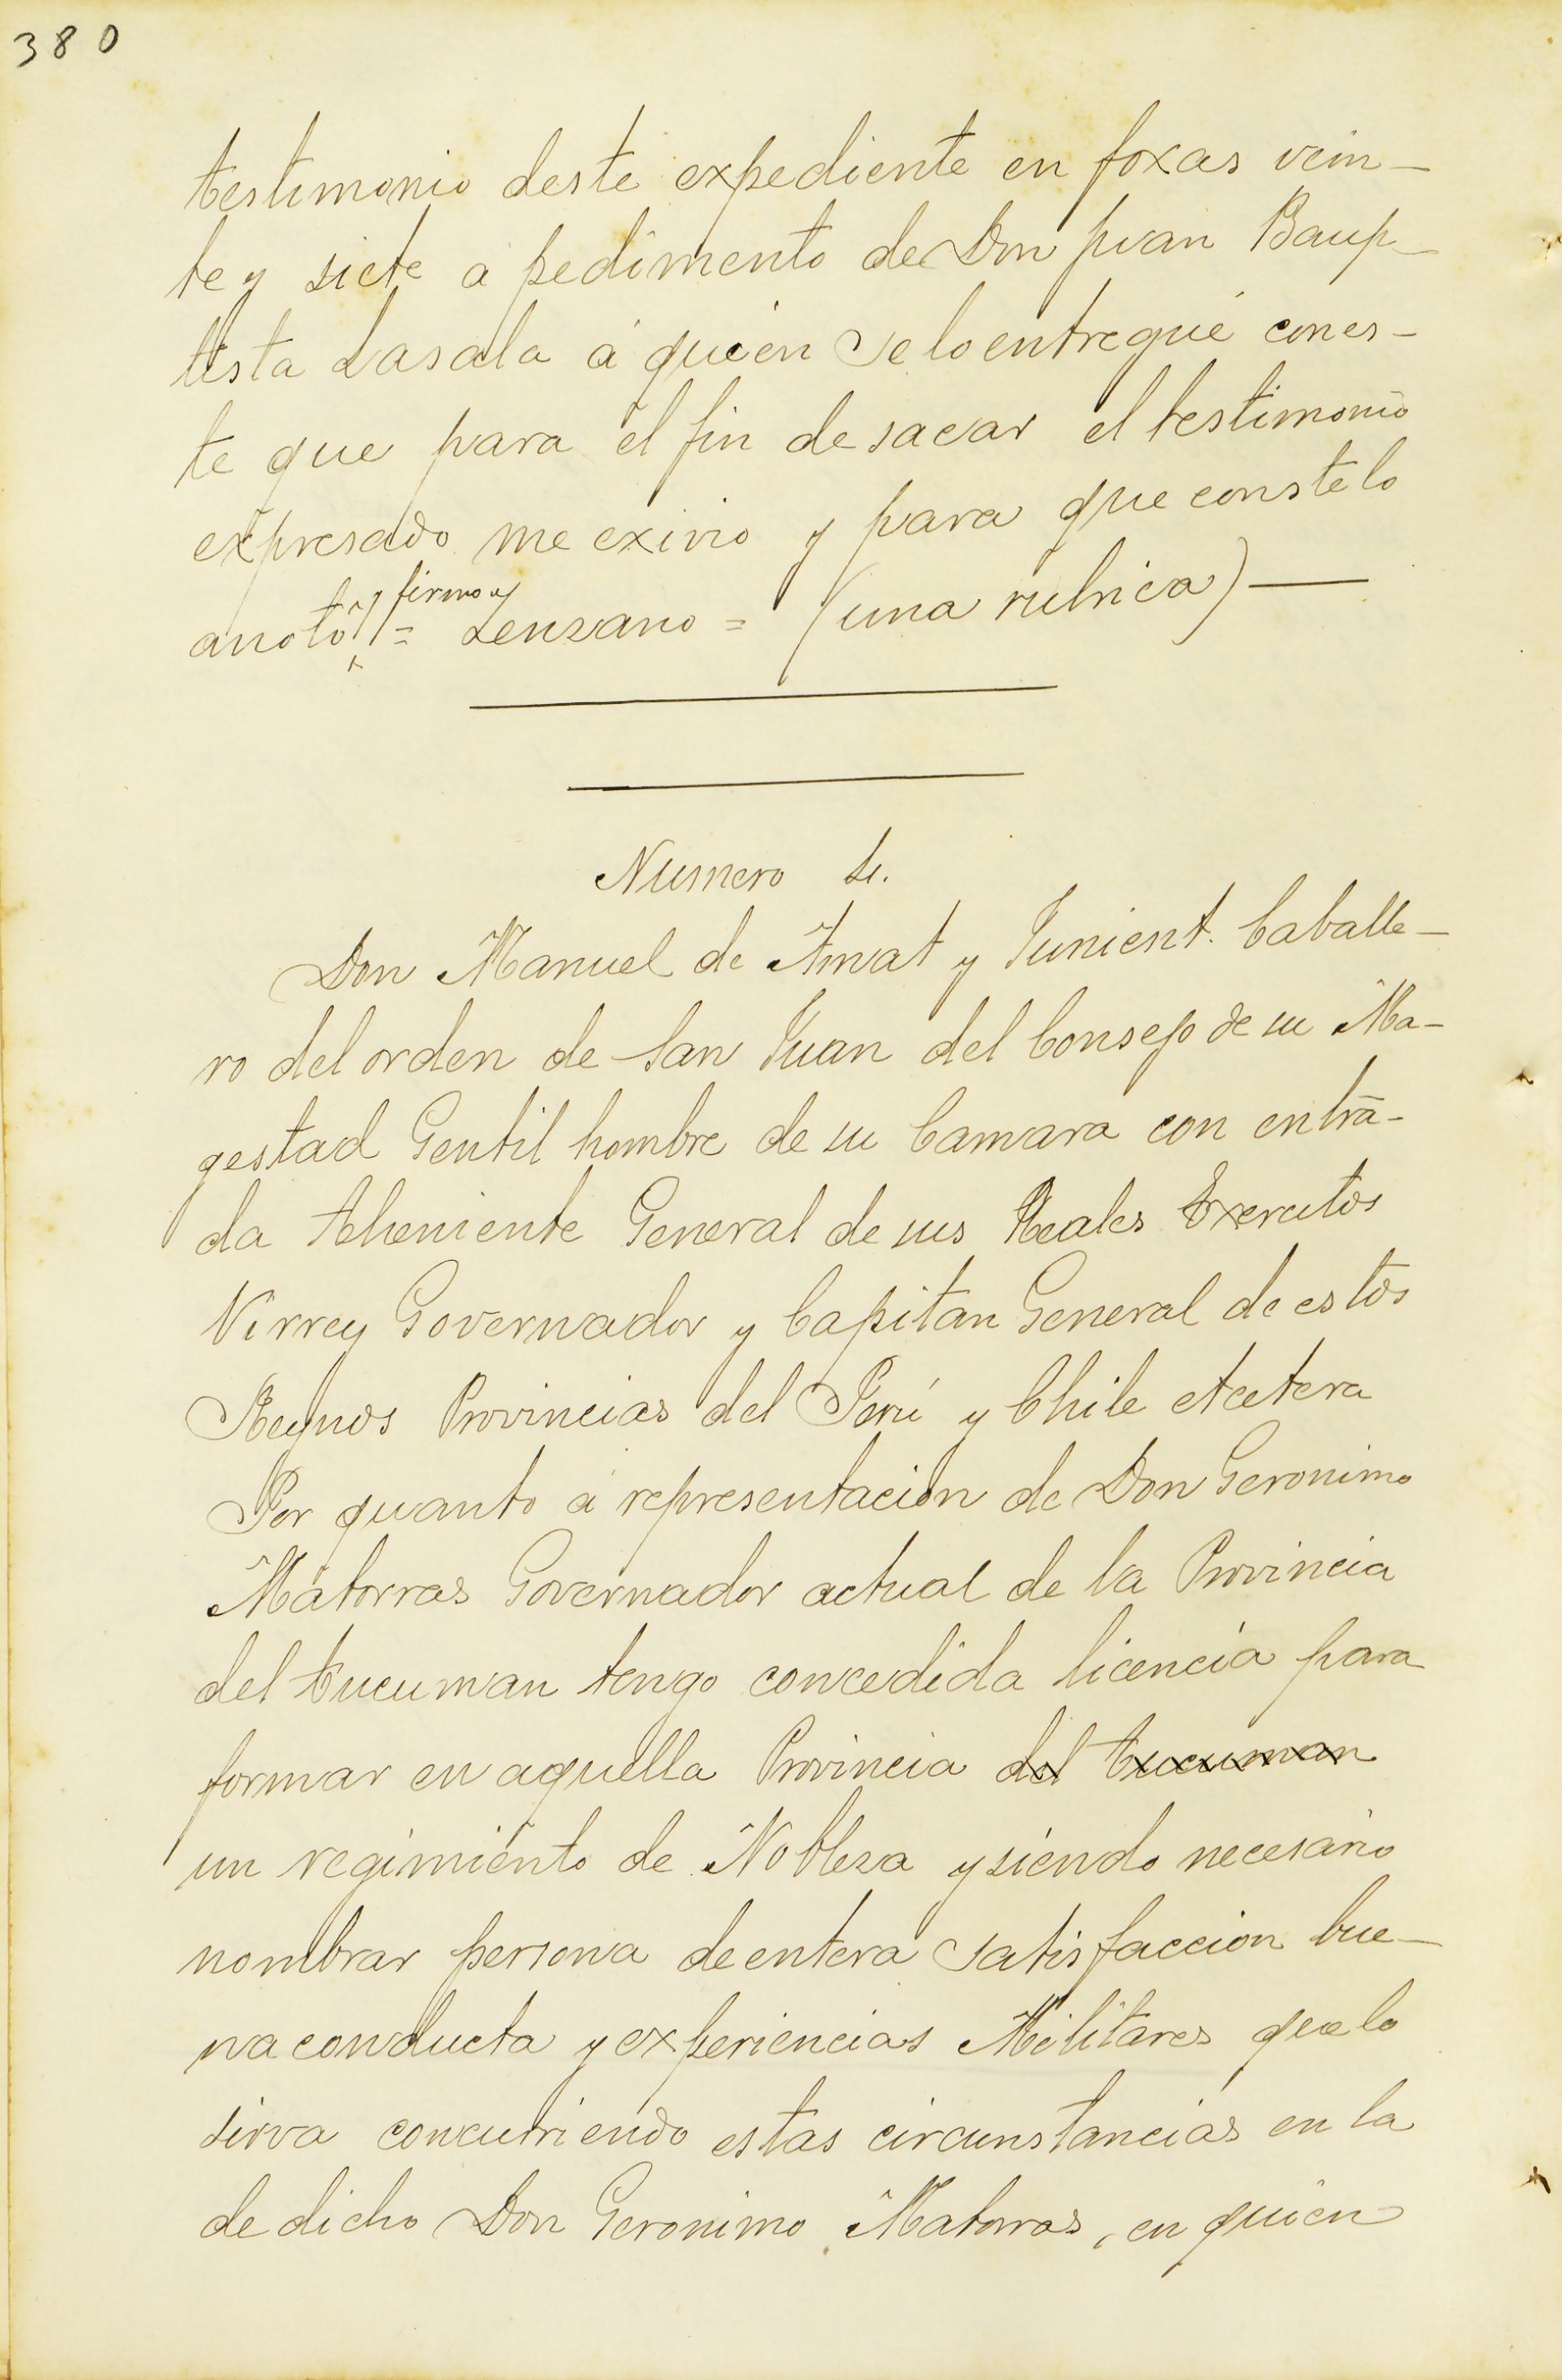 380
testimonio deste expediente en foxas vein-
te y siete a pedimento de Don Juan Baup-
tista Lasala á quien se lo entregué con es-
te que para el fin de sacar el testimonio
expresado me exivio y para que conste lo
anoto y firmo = Lenzano = (una rubrica)
Numero
Don Manuel de Amat y Junient. Caballe-
ro del orden de San Juan del Consejo de su Ma-
gestad Gentil hombre de su Camara con entra-
da theniente General de sus Reales Exercitos
Virrey Governador y Capitan General de estos
Reynos Provincias del Perú y Chile etcetera
Por quanto a representacion de Don Geronimo
Matorras Governador actual de la Provincia
del tucuman tengo concedida licencia para
formar en aquella Provincia del tucuman
un regimiento de Nobleza y siendo necesario
nombrar persona de entera satisfaccion bue-
na conducta y experiencias Militares que lo
sirva concurriendo estas circunstancias en la
de dicho Don Geronimo Matorras, en quien